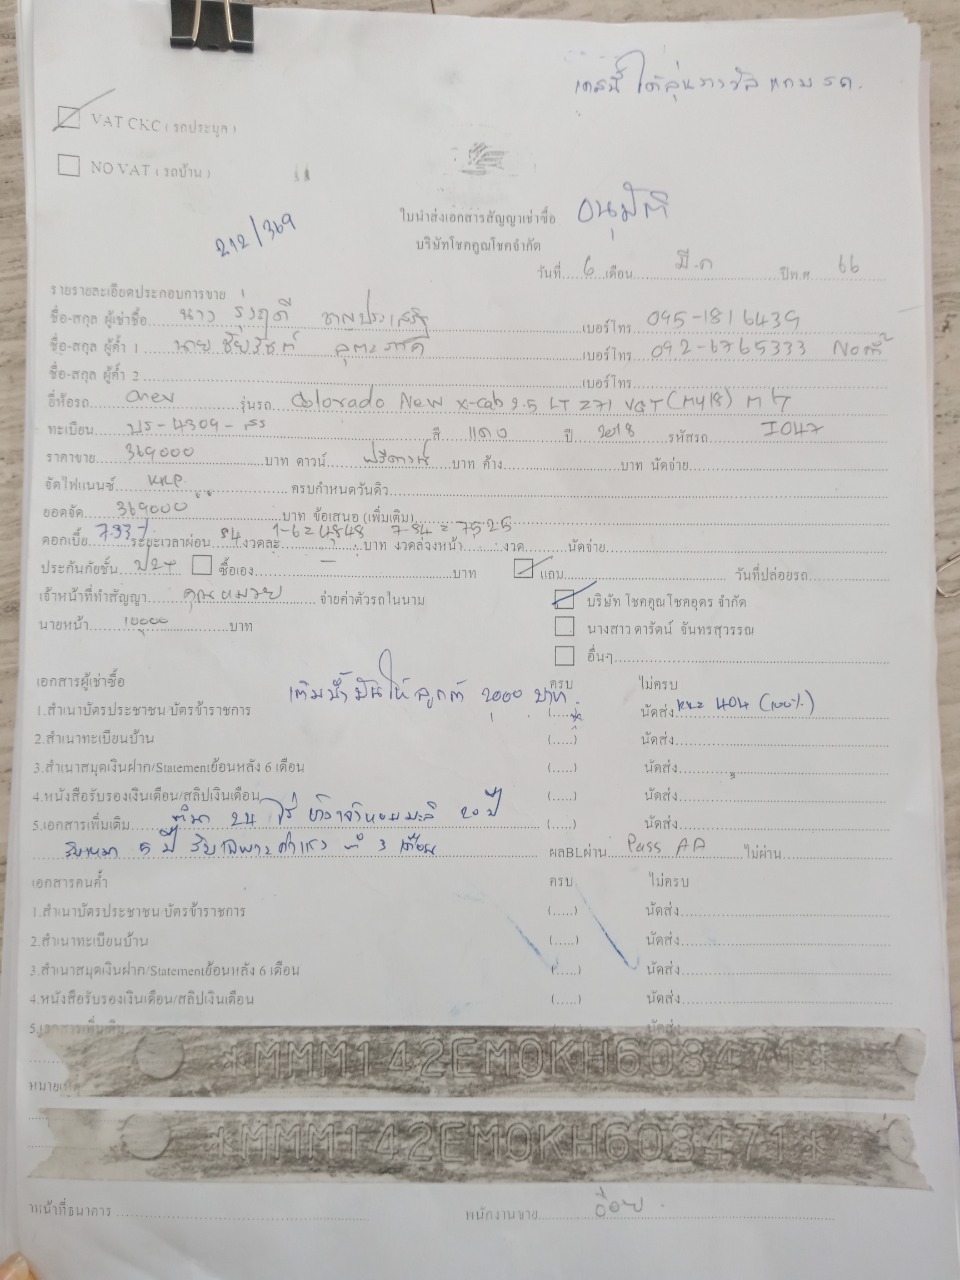 เคสนี้ ได้ลุ้นรางวัล แถม รถ.
VAT CKC ( รถประมูล )
NO VAT ( รถบ้าน )
212/369
ใบนำส่งเอกสารสัญญาเช่าซื้อ อนุมัติ
บริษัทโชคคูณโชคจำกัด
วันที่ 6 เดือน มี.ค ปีพ.ศ. 66
รายรายละเอียดประกอบการขาย
ชื่อ-สกุล ผู้เช่าซื้อ นาง รุ่งฤดี ชาญประเสริฐ เบอร์โทร 095-1816439
ชื่อ-สกุล ผู้ค้ำ 1 นาย ชัยรัชต์ เบอร์โทร 092-6765333
ชื่อ-สกุล ผู้ค้ำ 2 เบอร์โทร
ยี่ห้อรถ Chev รุ่นรถ Colorado New X-cab 2.5 LT Z71 VGT (MY18) MT
ทะเบียน บร-4309-สร สี แดง ปี 2018 รหัสรถ I047
ราคาขาย 369000 บาท ดาวน์ ฟรีดาวน์ บาท ค้าง บาท นัดจ่าย
จัดไฟแนนซ์ KKP ครบกำหนดวันดิว
ยอดจัด 369000 บาท ข้อเสนอ (เพิ่มเติม)
ดอกเบี้ย 7.33% ระยะเวลาผ่อน 84 งวดละ 1-6 = 4848 7-84 = 7525 บาท งวดล่วงหน้า งวด นัดจ่าย
ประกันภัยชั้น ป2+ ซื้อเอง - บาท แถม วันที่ปล่อยรถ
เจ้าหน้าที่ทำสัญญา คุณหมวย จ่ายค่าตัวรถในนาม บริษัท โชคคูณโชคอุดร จำกัด
นายหน้า 10,000 บาท นางสาว ดารัตน์ จันทรสุวรรณ
อื่นๆ
เอกสารผู้เช่าซื้อ เติมน้ำมันให้ลูกค้า 2000 บาท ครบ ไม่ครบ
1.สำเนาบัตรประชาชน/บัตรข้าราชการ (.....) นัดส่ง 404 (100%)
2.สำเนาทะเบียนบ้าน (.....) นัดส่ง
3.สำเนาสมุดเงินฝาก/Statementย้อนหลัง 6 เดือน (.....) นัดส่ง
4.หนังสือรับรองเงินเดือน/สลิปเงินเดือน (.....) นัดส่ง
5.เอกสารเพิ่มเติม ทำนา 24 ไร่ ข้าวเจ้าหอมมะลิ 20 ปี (.....) นัดส่ง
รับเหมา 5 ปี รับเฉพาะค่าแรง 3 เดือน ผลBLผ่าน Pass AA ไม่ผ่าน
เอกสารคนค้ำ ครบ ไม่ครบ
1.สำเนาบัตรประชาชน/บัตรข้าราชการ (.....) นัดส่ง
2.สำเนาทะเบียนบ้าน (.....) นัดส่ง
3.สำเนาสมุดเงินฝาก/Statementย้อนหลัง 6 เดือน (.....) นัดส่ง
4.หนังสือรับรองเงินเดือน/สลิปเงินเดือน (.....) นัดส่ง
5.เอกสารเพิ่มเติม นัดส่ง
*MMM142EM0KH603471*
*MMM142EM0KH603471*
พนักงานขาย